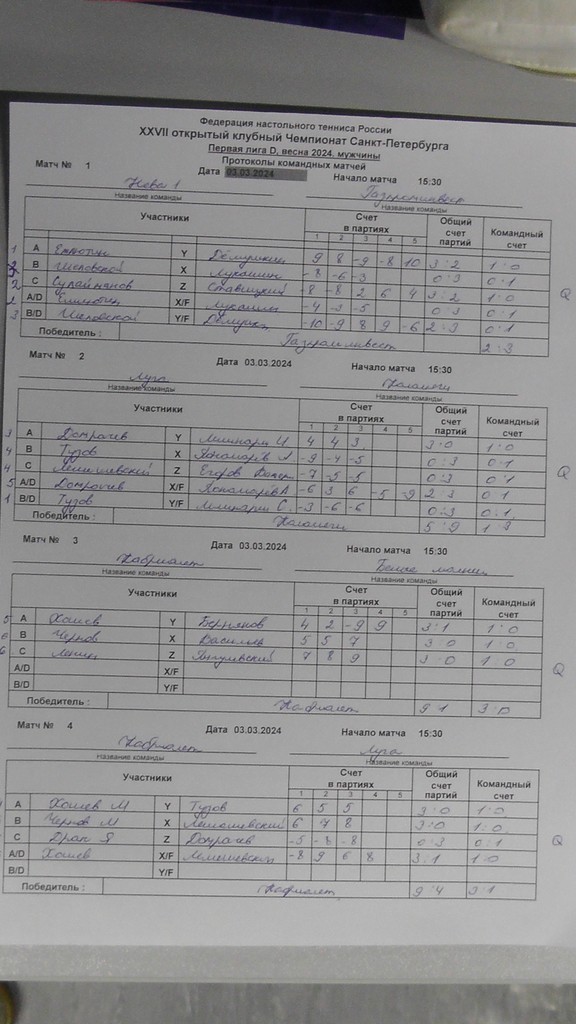 Федерация настольного тенниса России
XXVII открытый клубный Чемпионат Санкт-Петербурга
Первая лига D, весна 2024. мужчины
Протоколы командных матчей
Матч № 1 Дата 03.03.2024 Начало матча 15:30
Нева 1 Газпроминвест
Название команды Название команды
Участники Счет в партиях Общий счет партий Командный счет
1 2 3 4 5
1 A Y 9 8 -9 -8 10 3:2 1:0
B X Лукашин -8 -6 -3 0:3 0:1
2 C Сулайманов Z Ставицкий -8 -8 2 6 4 3:2 1:0
2 A/D X/F Лукашин -4 -3 -5 0:3 0:1
3 B/D Y/F -10 -9 8 9 -6 2:3 0:1
Победитель : Газпроминвест 2:3
Матч № 2 Дата 03.03.2024 Начало матча 15:30
Луга
Название команды Название команды
Участники Счет в партиях Общий счет партий Командный счет
1 2 3 4 5
3 A Домрачев Y 4 4 3 3:0 1:0
4 B Тузов X -9 -4 -5 0:3 0:1
4 C Лемешевский Z Егоров -7 -5 -5 0:3 0:1
5 A/D Домрачев X/F Пономарёв А -6 3 6 -5 -9 2:3 0:1
1 B/D Тузов Y/F -3 -6 -6 0:3 0:1
Победитель : 5:9
Матч № 3 Дата 03.03.2024 Начало матча 15:30
Белые молнии
Название команды Название команды
Участники Счет в партиях Общий счет партий Командный счет
1 2 3 4 5
5 A Хошев Y 4 2 -9 9 3:1 1:0
6 B Чернов X Васильев 5 5 7 3:0 1:0
6 C Ленин Z 7 8 9 3:0 1:0
A/D X/F
B/D Y/F
Победитель : 9:1 3:0
Матч № 4 Дата 03.03.2024 Начало матча 15:30
Луга
Название команды Название команды
Участники Счет в партиях Общий счет партий Командный счет
1 2 3 4 5
A Хошев М Y Тузов 6 5 5 3:0 1:0
B Чернов М X Лемешевский 6 7 8 3:0 1:0
C Драп Я Z Домрачев -5 -8 -8 0:3 0:1
A/D Хошев X/F Лемешевский -8 9 6 8 3:1 1:0
B/D Y/F
Победитель : 9:4 3:1